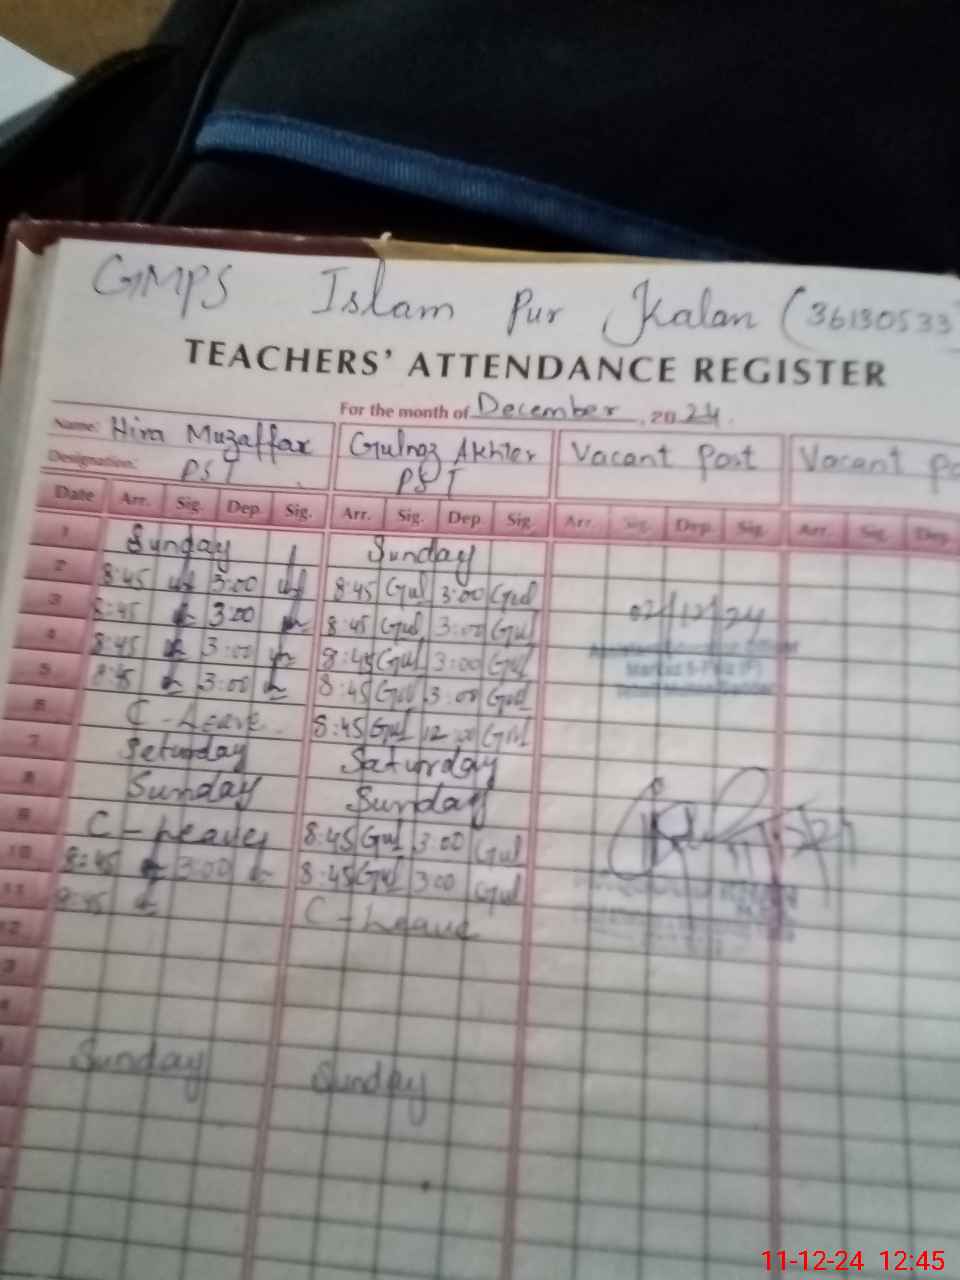 GMPS Islam Pur Kalan (36130533)
TEACHERS' ATTENDANCE REGISTER
For the month of December, 2024.
Name: Hira Muzaffar Gulnaz Akhter Vacant Post Vacant
Designation: PST PST
Date Arr. Sig. Dep. Sig. Arr. Sig. Dep. Sig. Arr. Sig. Dep. Sig. Arr. Sig. Dep.
1 Sunday Sunday
2 8:45 3:00 8:45 Gul 3:00 Gul
3 8:45 3:00 8:45 Gul 3:00 Gul 02/12/24
4 8:45 3:00 8:45 Gul 3:00 Gul
5 8:45 3:00 8:45 Gul 3:00 Gul
6 C-Leave 8:45 Gul 12:00 Gul
7 Seturday Saturday
8 Sunday Sunday
9 C-Leave 8:45 Gul 3:00 Gul
10 8:45 3:00 8:45 Gul 3:00 Gul
11 8:45 C-Leave
12
Sunday Sunday
11-12-24 12:45